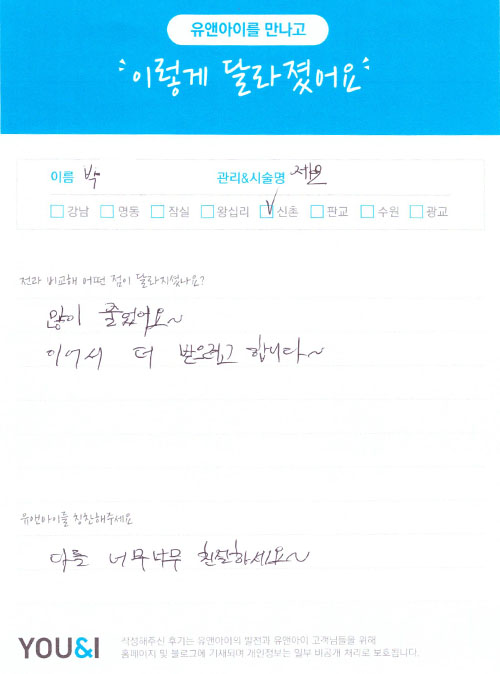 유앤아이를 만나고
이렇게 달라졌어요
이름 박 관리&시술명 제모
강남 명동 잠실 왕십리 신촌 판교 수원 광교
전과 비교해 어떤 점이 달라지셨나요?
많이 줄었어요~
이어서 더 받으려고 합니다~
유앤아이를 칭찬해주세요
다들 너무너무 친절하세요~
YOU&I
작성해주신 후기는 유앤아이의 발전과 유앤아이 고객님들을 위해
홈페이지 및 블로그에 기재되며 개인정보는 일부 비공개 처리로 보호됩니다.